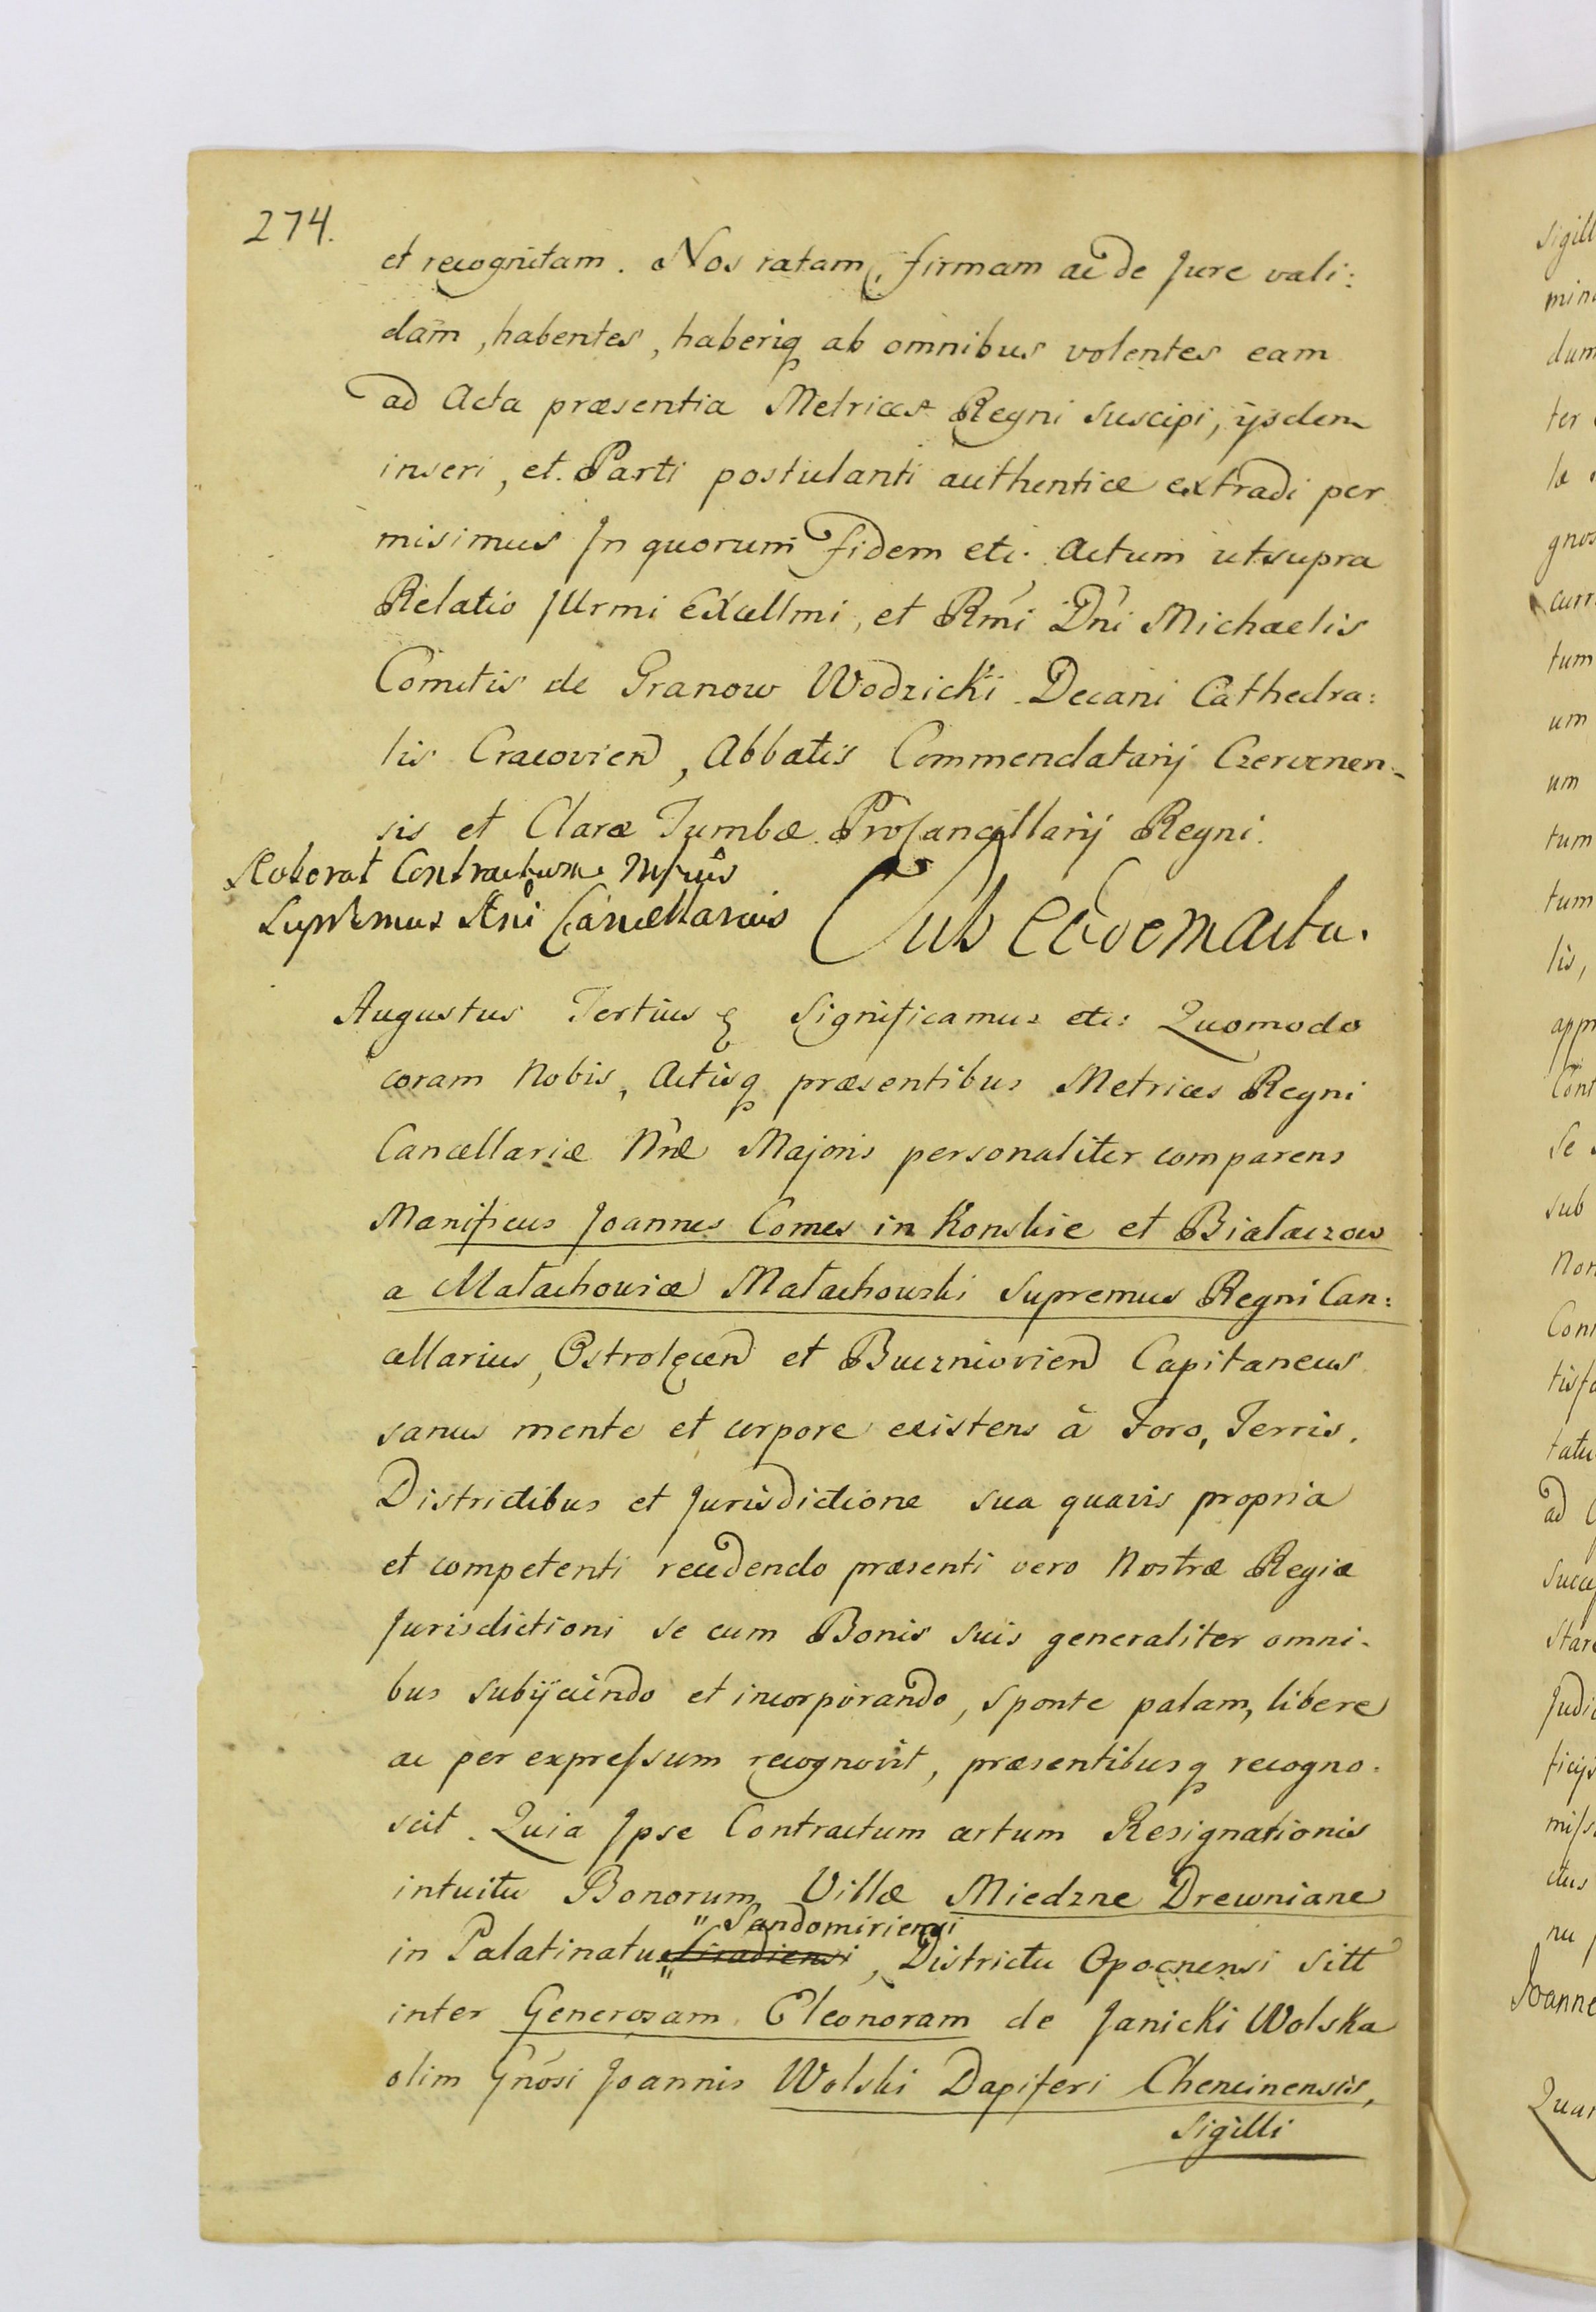 274.
et recognitam. Nos ratam, firmam ac de Jure vali:
dam, habentes, haberiq ab omnibus volentes eam
ad Acta præsentia Metrices Regni suscipi, ijsdem
inseri, et Parti postulanti authentice extradi per
misimus In quorum fidem etc. Actum ut supra
Relatio Jllrmi Excellmi, et Rmi Dni Michaelis
Comitis de Granow Wodzicki Decani Cathedra:
lis Cracovien, Abbatis Commendatarij Czervenen-
sis et Claræ Tumbæ Procancellarij Regni.
Roborat Contractum
Supremus Rni Cancellarius
Sub eodem actu.
Augustus Tertius Significamus etc: Quomodo
coram Nobis, Actisq præsentibus Metrices Regni
Cancellariæ Nræ Majoris personaliter comparens
Manificus Joannes Comes in Konskie et Białaczow
a Małachowice Małachowski Supremus Regni Can:
cellarius, Ostrołęcen et Buczniovien Capitaneus
sanus mente et corpore existens à Foro, Terris,
Districtibus et Jurisdictione sua quavis propria
et competenti recedendo præsenti vero Nostræ Regiæ
Jurisdictioni se cum Bonis suis generaliter omni-
bus subijciendo et incorporando, sponte palam, libere
ac per expressum recognovit, præsentibusq recogno-
scit. Quia Ipse Contractum certum Resignationis
intuitu Bonorum Villæ Miedzne Drewniane
" Sandomiriensi
in Palatinatu Siradiensi, Districtu Opocnensi sitt
inter Generosam Eleonoram de Janicki Wolska
olim Gnosi Joannis Wolski Dapiferi Chencinensis,
Sigilli